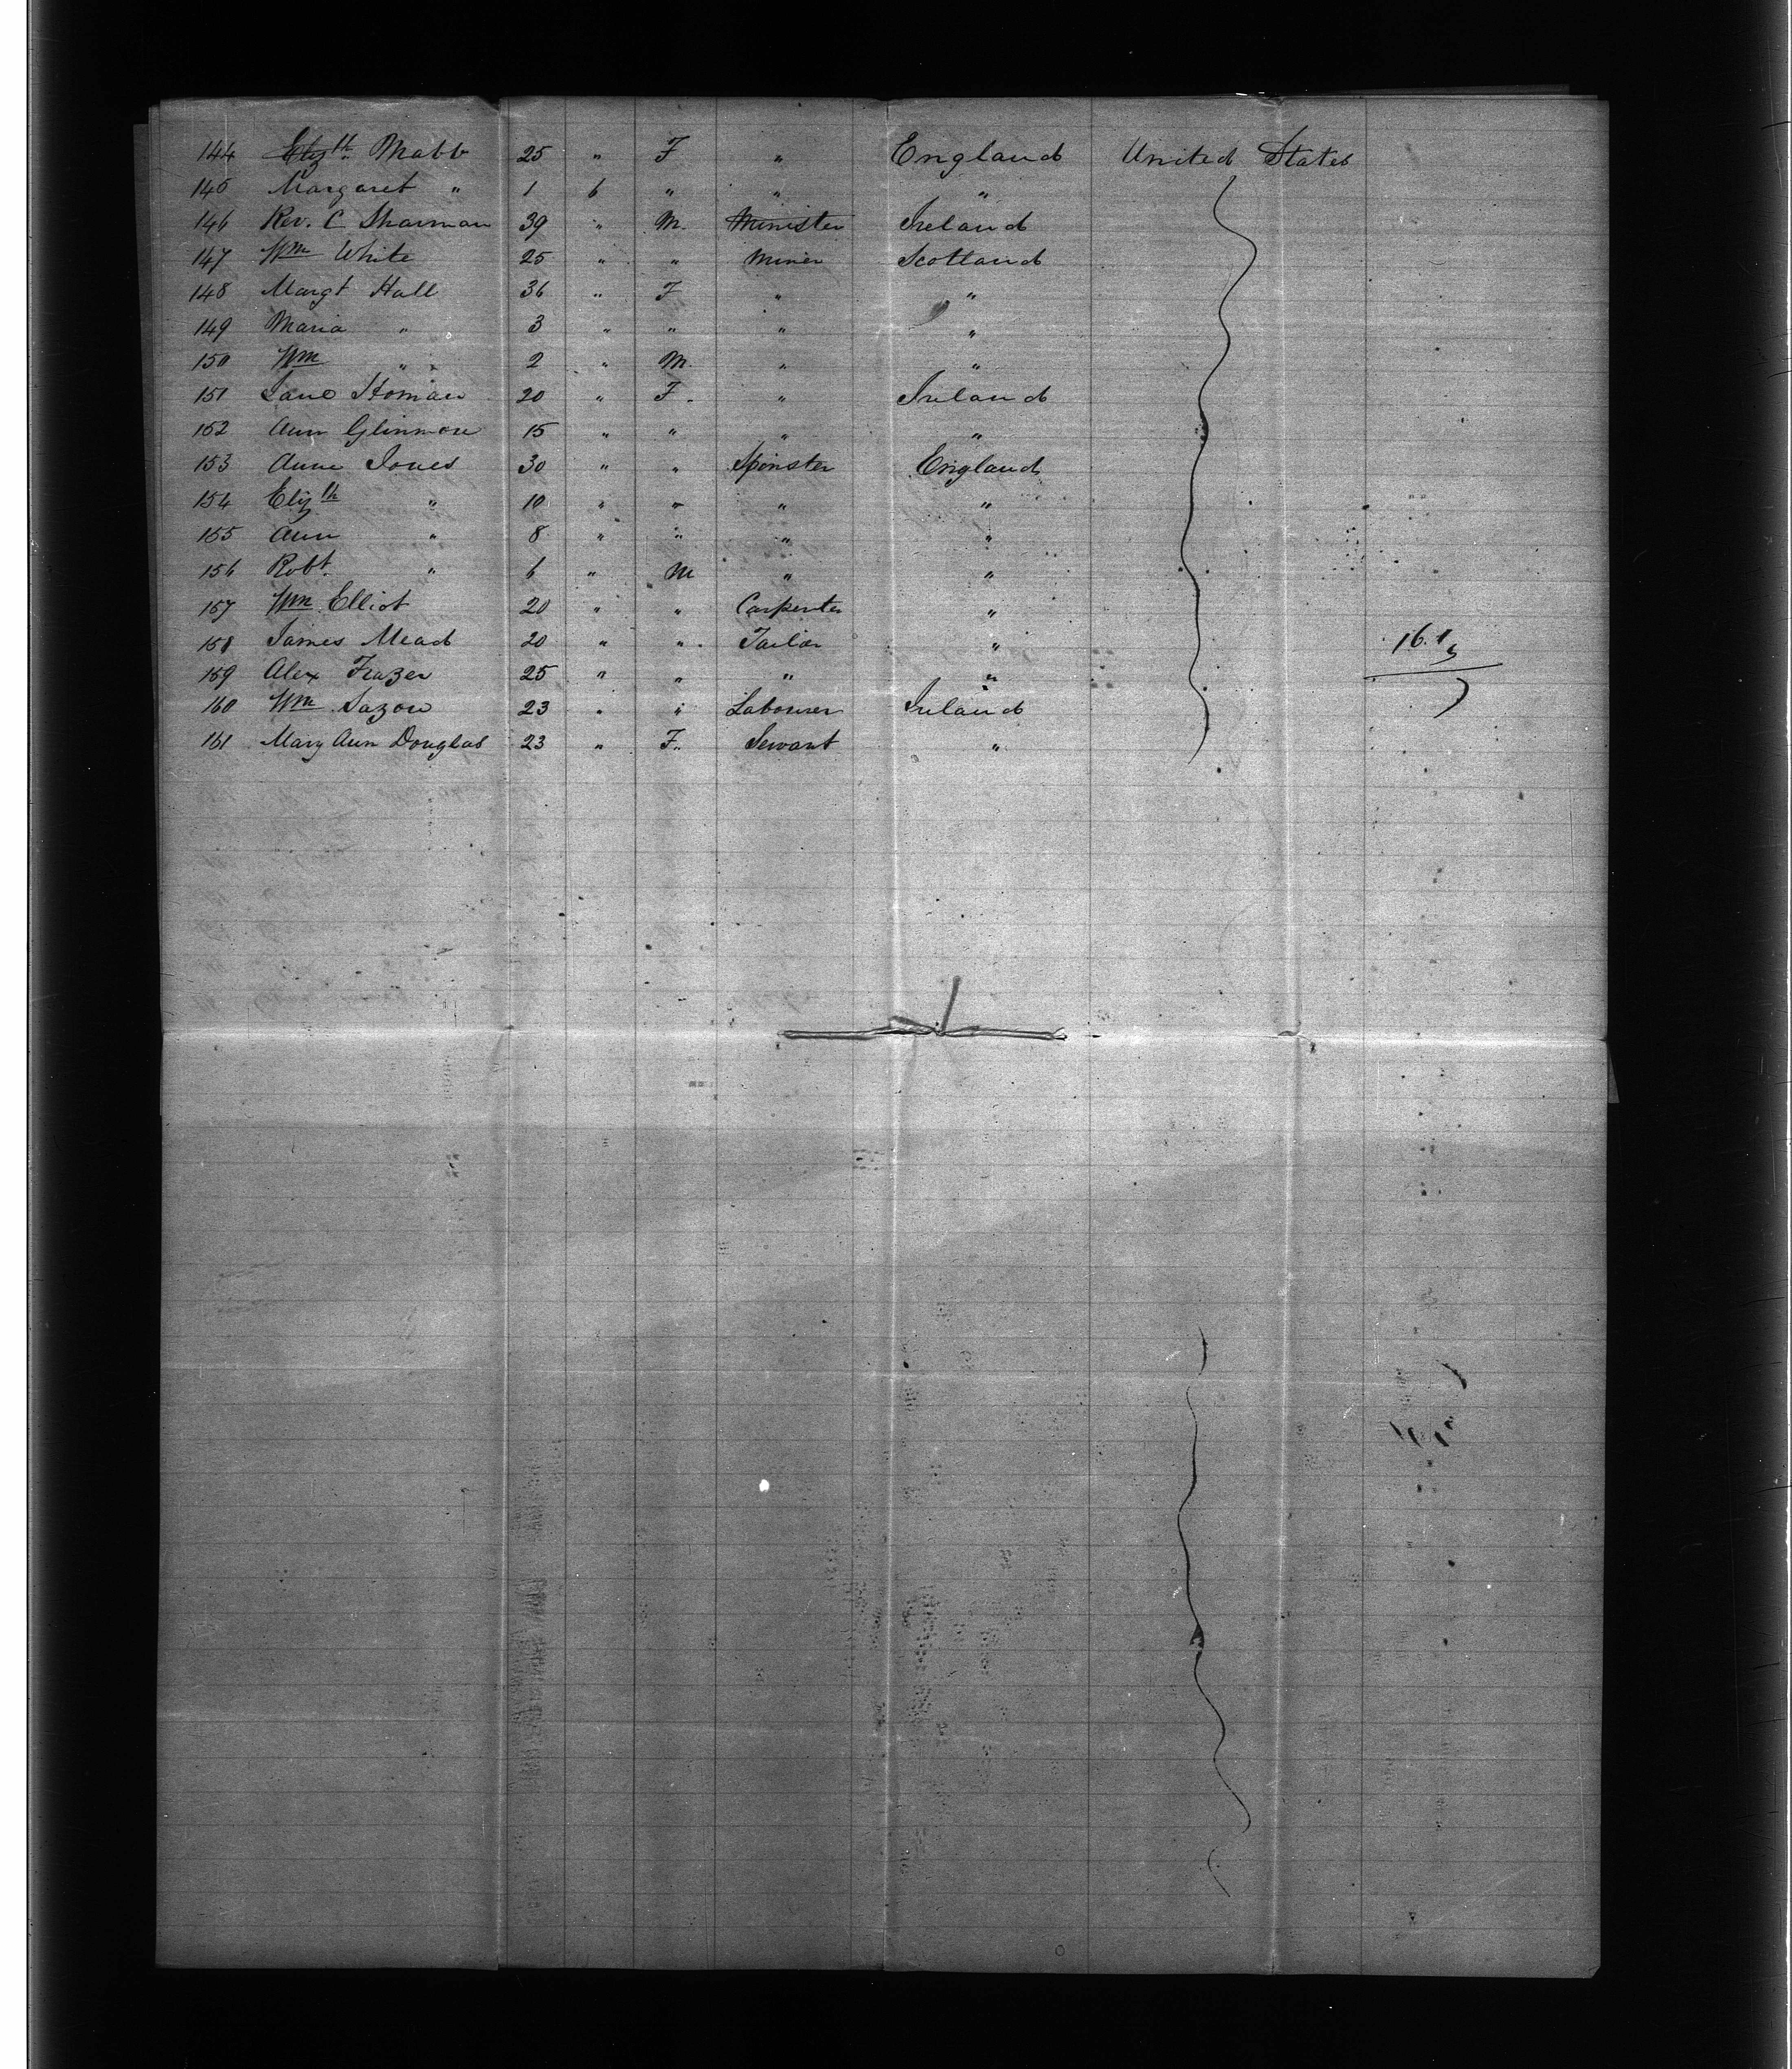 144 Elizth Mabb 25 " F " England United States
145 Margaret " 1 6 " " "
146 Rev. C Sharman 39 " M. Minister Ireland
147 Wm White 25 " " Miner Scotland
148 Margt Hall 36 " F " "
149 Maria " 3 " " " "
150 Wm " 2 " M. " "
151 Jane 20 " F. " Ireland
152 Ann Glinmore 15 " " " "
153 Anne Jones 30 " " Spinster England
154 Elizth " 10 " " " "
155 Ann " 8 " " " "
156 Robt. " 6 " M " "
157 Wm Elliot 20 " " Carpenter "
158 James Mead 20 " " Tailor "
159 Alex Frazer 25 " " " "
160 Wm 23 " " Labourer Ireland
161 Mary Ann Douglas 23 " F. Servant "